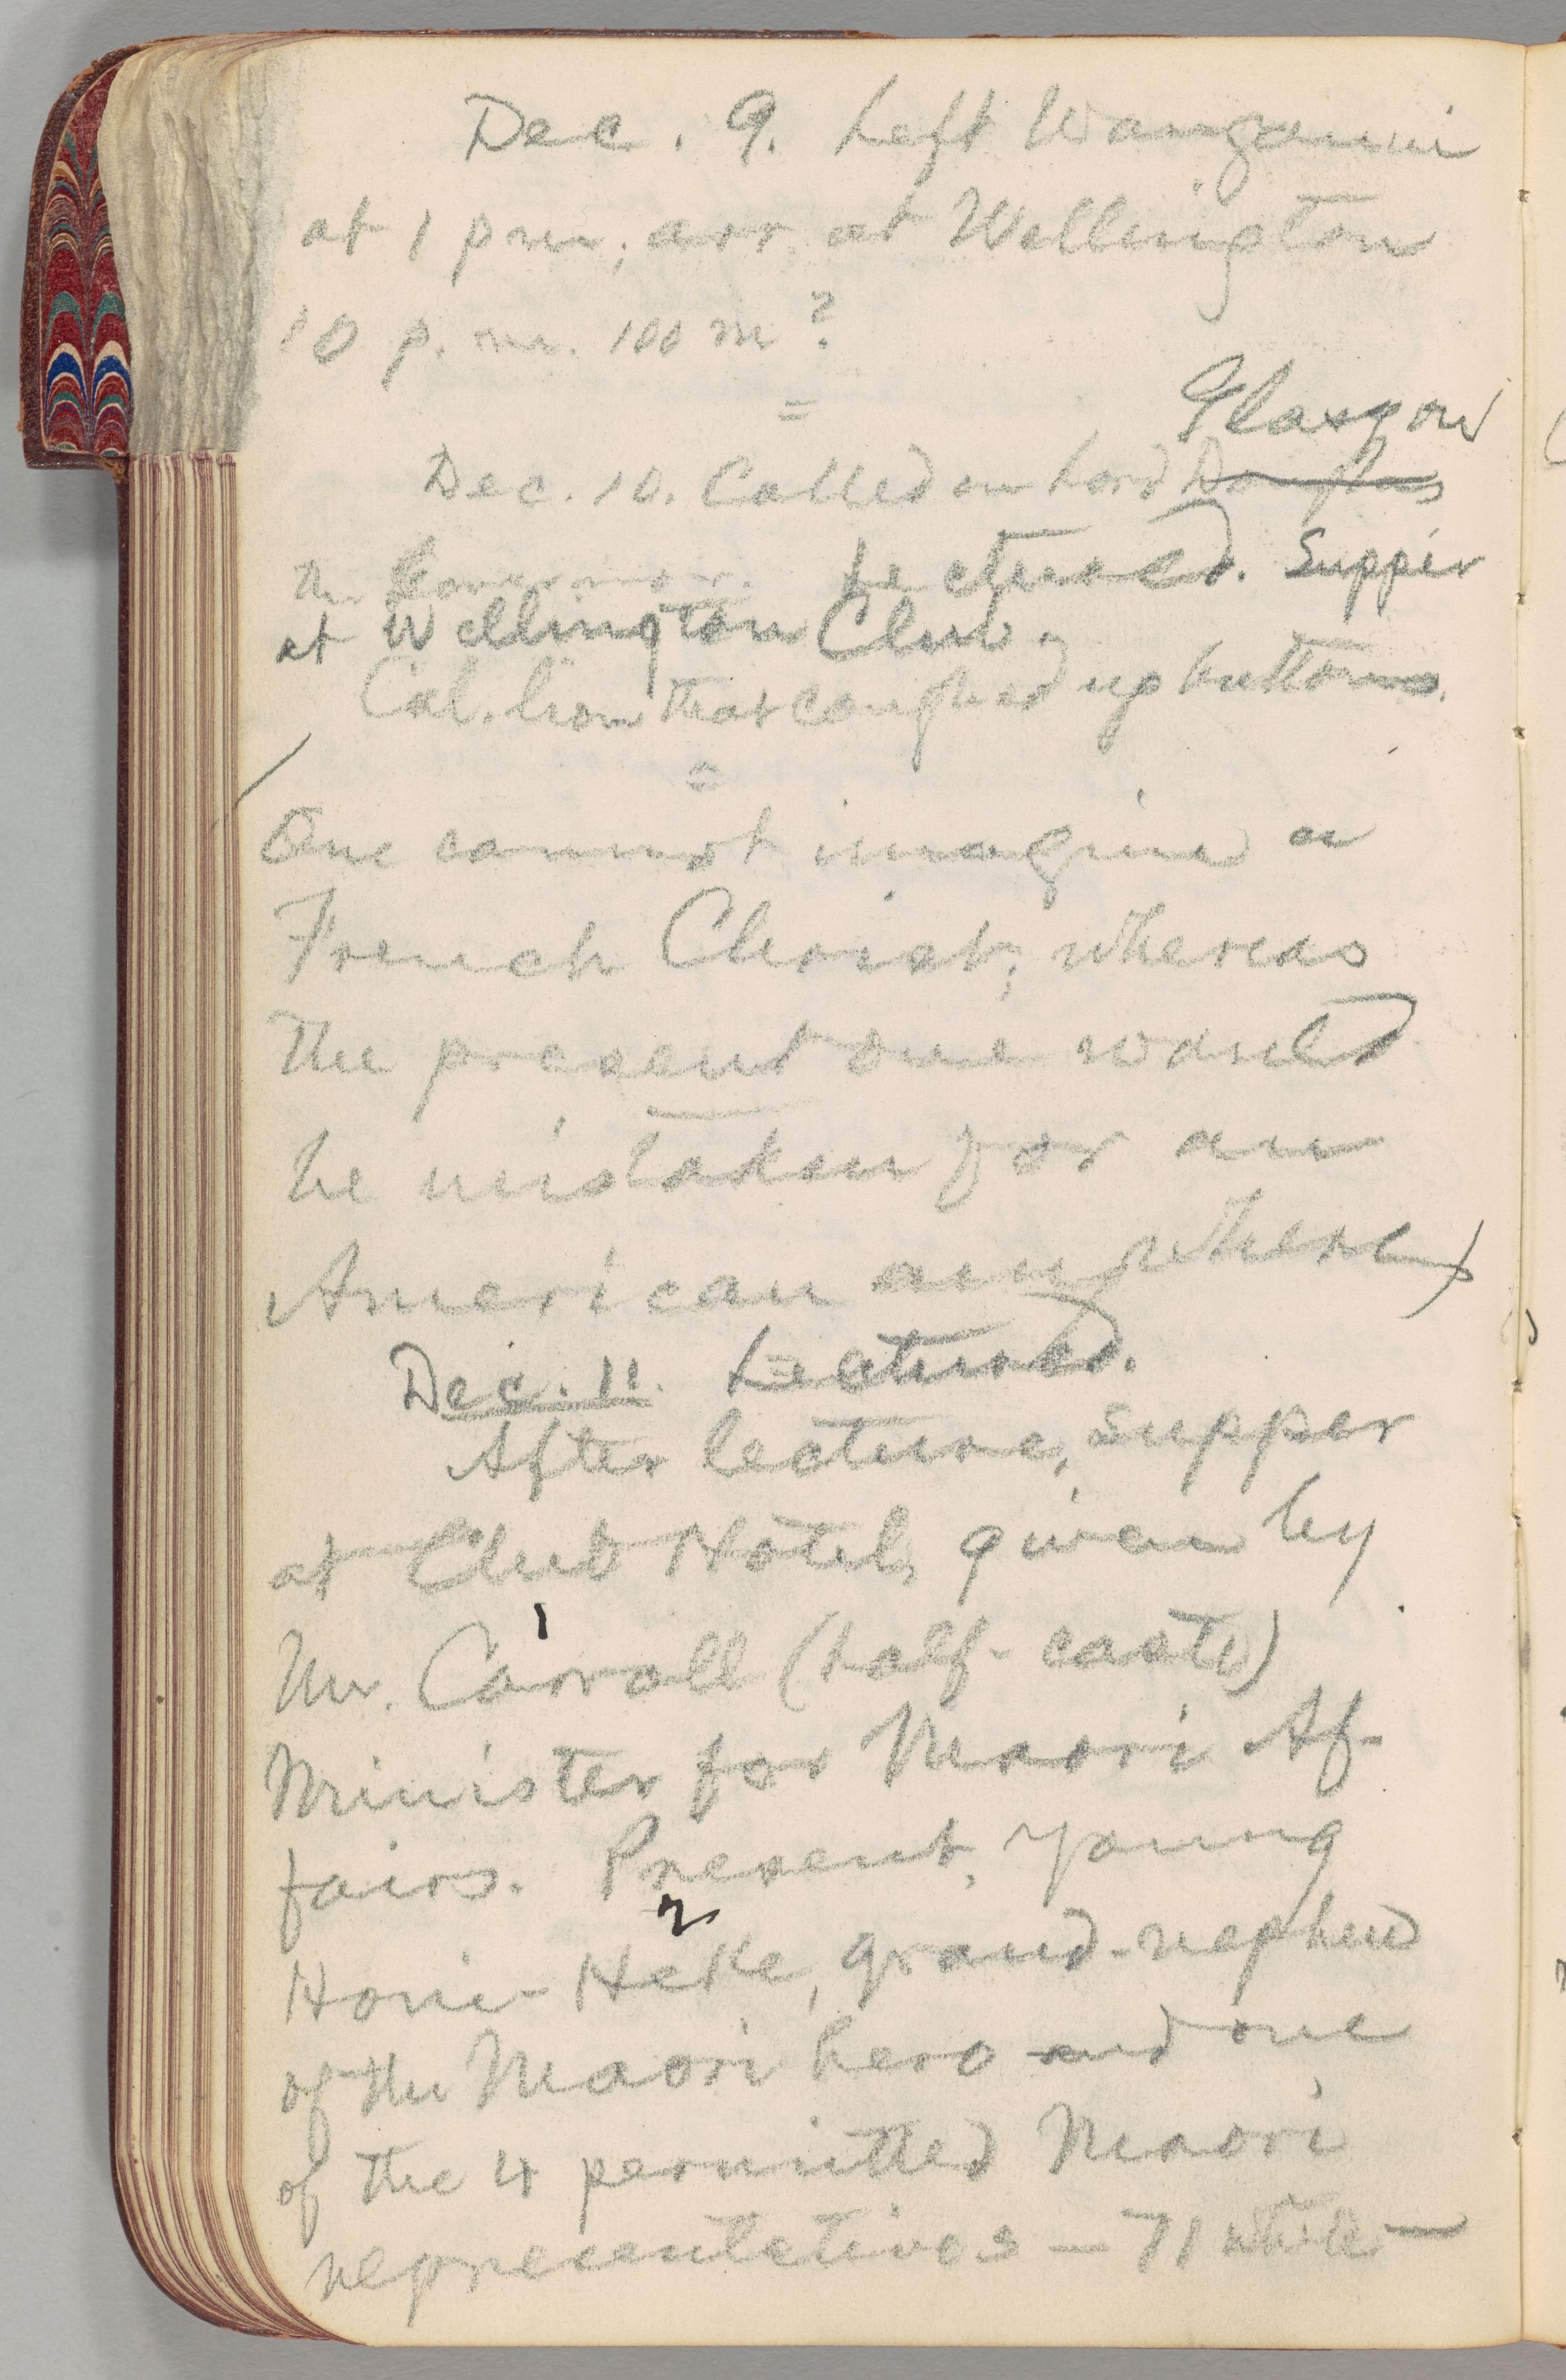 Dec. 9. Left Wanganui
at 1 pm; arr. at Wellington
10 p.m. 100 m?
=
Glasgow
Dec. 10. Called on Lord Douglas
the Governor. Lectured. Supper
at Wellington Club.
Cal. lion that coughed up buttons.
=
One cannot imagine a
French Christ; whereas
the present one would
be mistaken for an
American anywhere
Dec. 11. Lectured.
After lecture, supper
at Club Hotel, given by
Mr. Carroll (half-caste)
Minister for Maori Af-
fairs. Present, young
Honi-Heke, grand-nephew
of the Maori hero and one
of the 4 permitted Maori
representatives — 71 white —